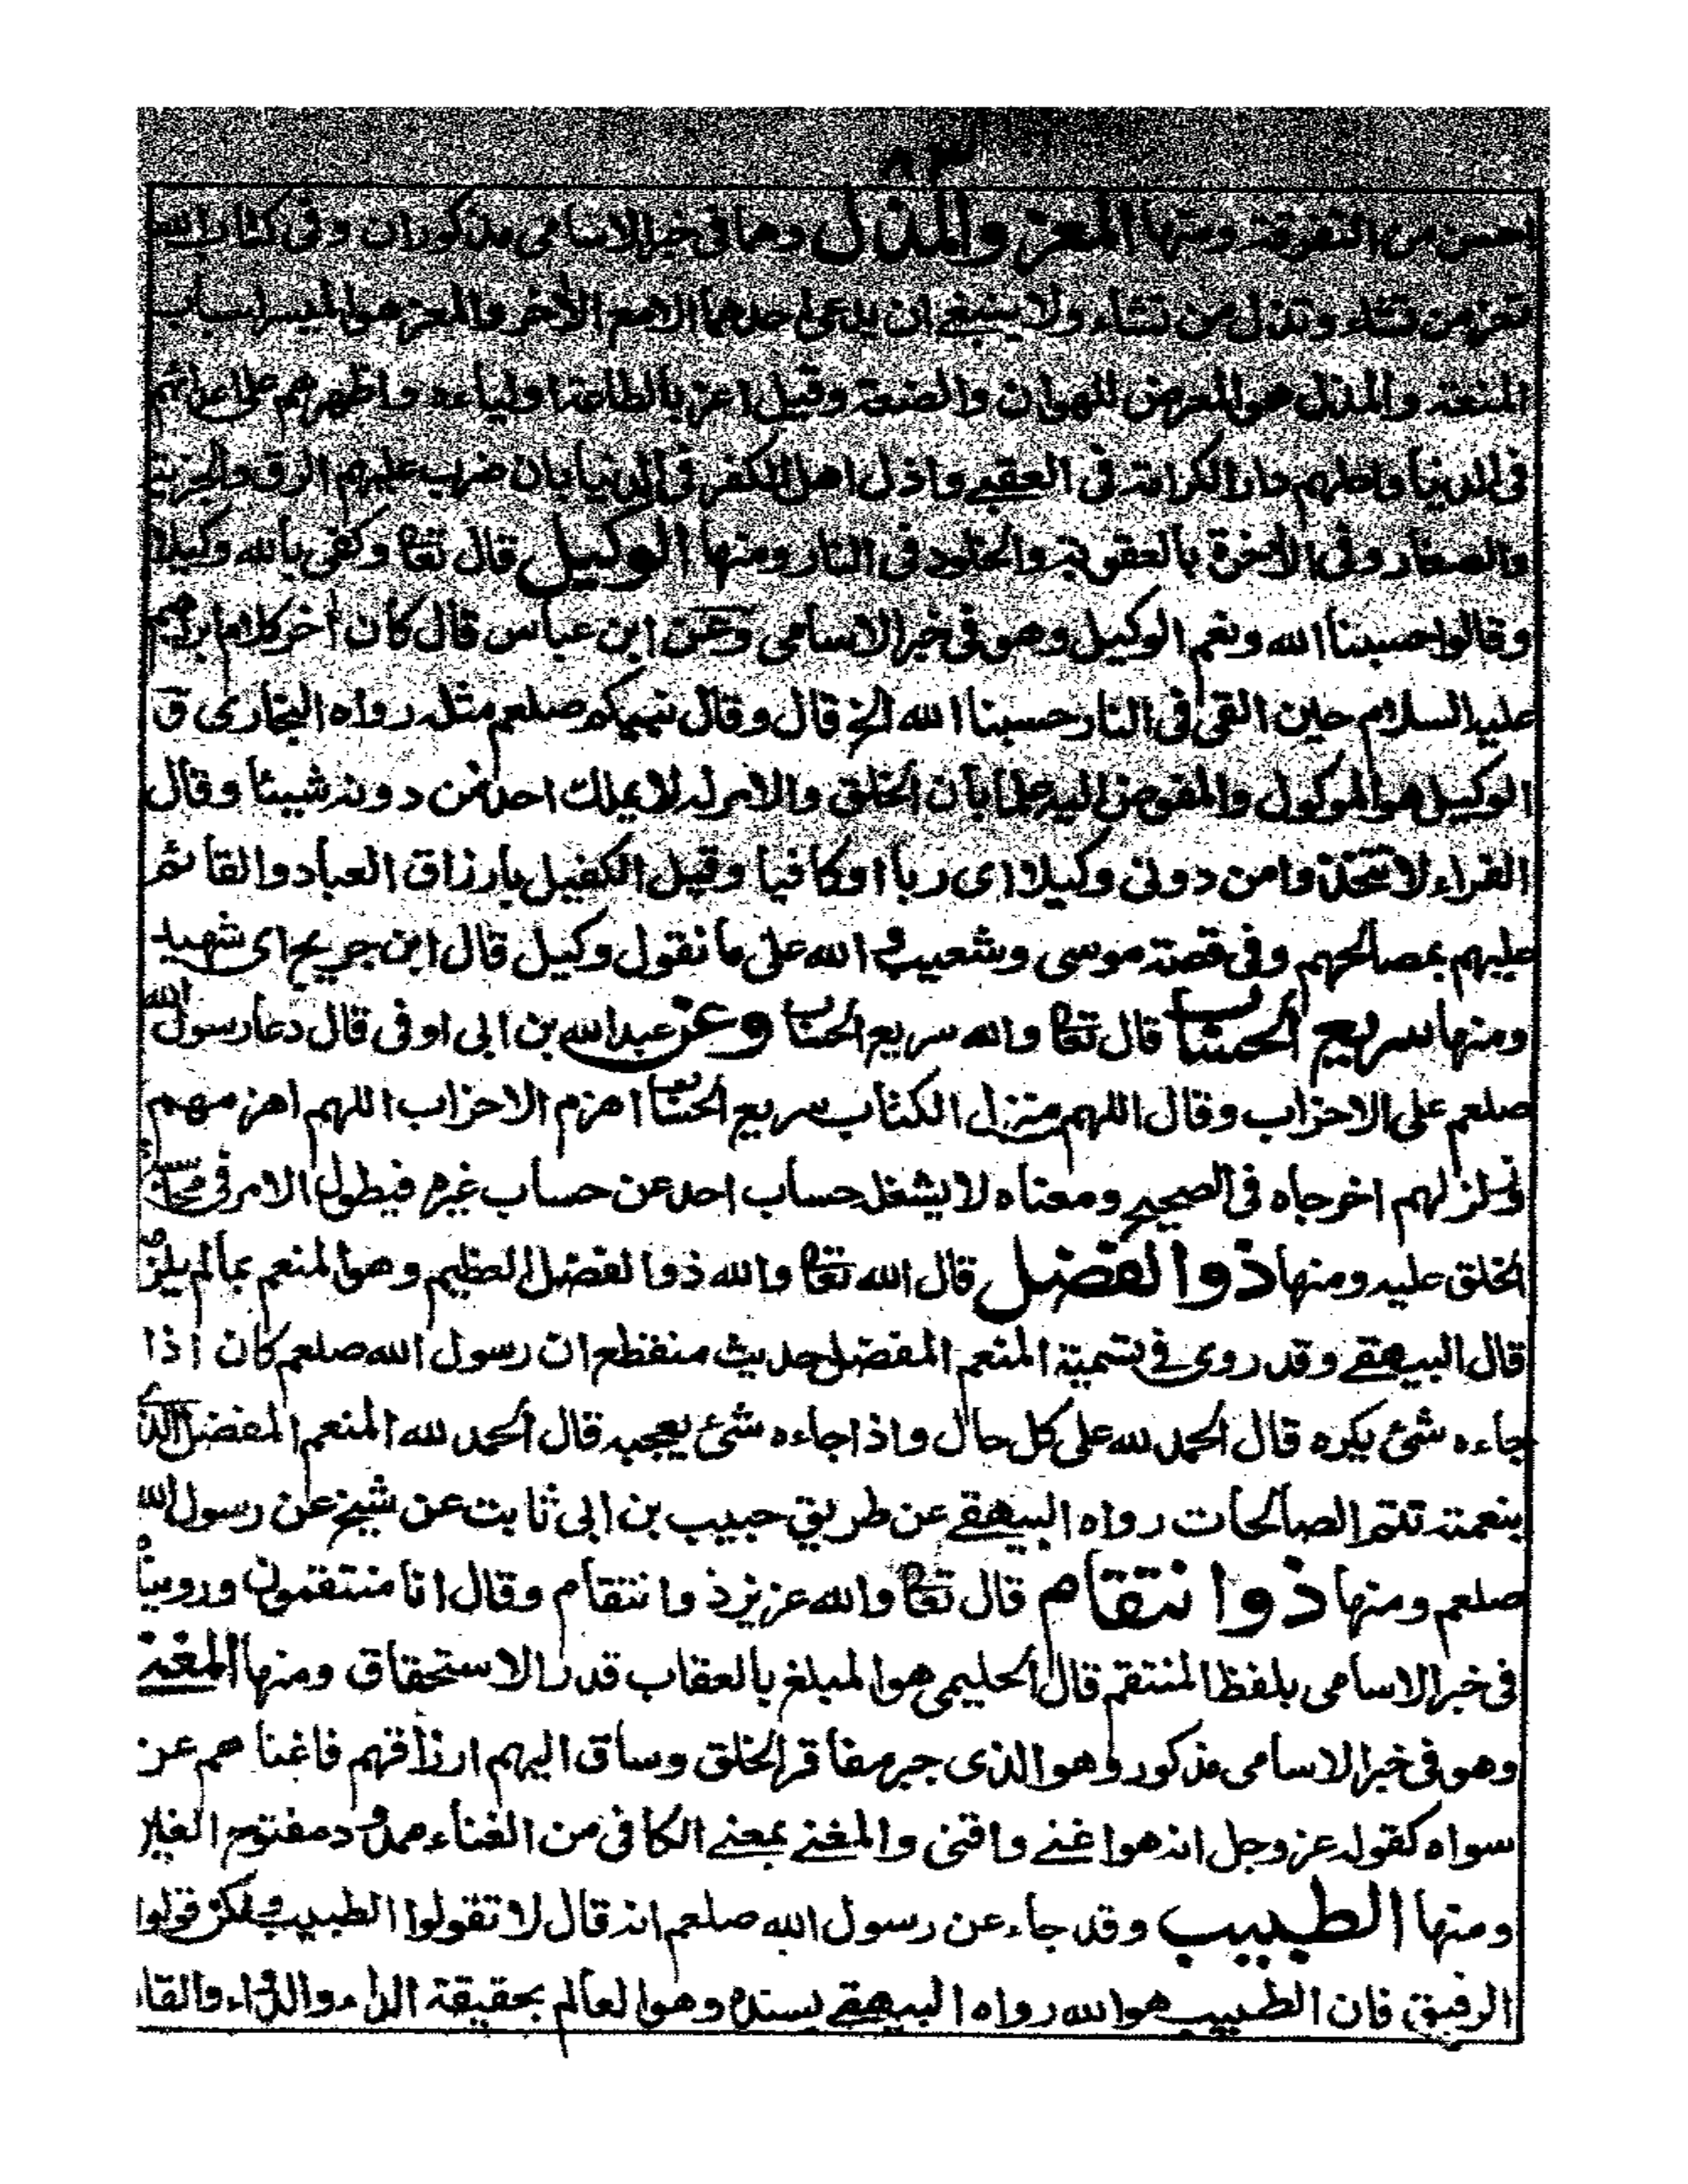 ٨٣
احسن من التفرقة ومنها المعز والمذل وهما فى خبر الاسامى مذكوران وفى كتاب الله
تعز من تشاء وتذل من تشاء ولا ينبغى ان يدعى احدهما الا مع الأخر والمعز هو الميسر اسباب
المنعة والمذل هو المعرض للهوان والضعة وقيل اعز بالطاعة اولياءه واظهرهم على اعدائهم
فى الدنيا واحلهم دار الكرامة فى العقبے واذل اهل الكفر فى الدنيا بان ضرب عليهم الرق والجزية
والصغار وفى الأخرة بالعقوبة والخلود فى النار ومنها الوكيل قال تعا وكفى بالله وكيلا
وقالوا حسبنا الله ونعم الوكيل وهو فى خبر الاسامى وعن ابن عباس قال كان أخر كلام ابراهيم
عليه السلام حين القى فى النار حسبنا الله الخ قال وقال نبيكم صلعم مثله رواه البخارى ق
الوكيل هو الموكول والمفوض اليه علما بان الخلق والامر له لا يملك احد من دونه شيئا وقال
الفراء لا تتخذوا من دونى وكيلا اى ربا او كافيا وقيل الكفيل بارزاق العباد والقائم
عليهم بمصالحهم وفى قصة موسى وشعيب والله على ما نقول وكيل قال ابن جريج اى شهيد
ومنها سريع الحساب قال تعا والله سريع الحساب وعن عبد الله بن ابى اوفى قال دعا رسول الله
صلعم على الاحزاب وقال اللهم منزل الكتاب سريع الحساب اهزم الاحزاب اللهم اهزمهم
وزلزلهم اخرجاه فى الصحيح ومعناه لا يشغله حساب احد عن حساب غيره فيطول الامر فى محاسبة
الخلق عليه ومنها ذوا الفضل قال الله تعا والله ذوا لفضل العظيم وهو المنعم بما لم يلزمه
قال البيهقے وقد روى فى تسمية المنعم المفضل حديث منقطع ان رسول الله صلعم كان اذا
جاءه شئ يكره قال الحمد لله على كل حال واذا جاءه شئ يعجبه قال الحمد لله المنعم المفضل الذى
بنعمته تتم الصالحات رواه البيهقے عن طريق حبيب بن ابى ثابت عن شيخ عن رسول الله
صلعم ومنها ذوا نتقام قال تعا والله عزيز ذوا نتقام وقال انا منتقمون وروينا
فى خبر الاسامى بلفظ المنتقم قال الحليمى هو المبلغ بالعقاب قدر الاستحقاق ومنها المغنے
وهو فى خبر الاسامى مذكور وهو الذى جبر مفاقر الخلق وساق اليهم ارزاقهم فاغناهم عن
سواه كقوله عز وجل انه هو اغنے واقنى والمغنے بمعنے الكافى من الغناء ممدود مفتوح الغين
ومنها الطبيب وقد جاء عن رسول الله صلعم انه قال لا تقولوا الطبيب ولكن قولوا
الرفيق فان الطبيب هو الله رواه البيهقے بسنده وهو العالم بحقيقة الداء والدواء والقا